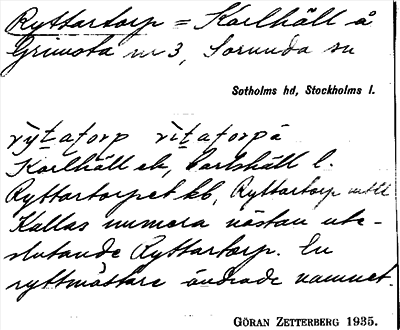 Ryttartorp = Karlhäll å
Grimsta nr 3, Sorunda sn
Sotholms hd, Stockholms l.
rỳtatorp rìtatorpä
Karlhäll ek, Carlshäll l.
Ryttartorpet kb, Ryttartorp
Kallas numera nästan ute-
slutande Ryttartorp. En
ryttmästare ändrade namnet.
GÖRAN ZETTERBERG 1935.